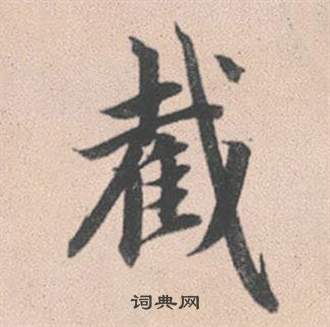 截
词典网